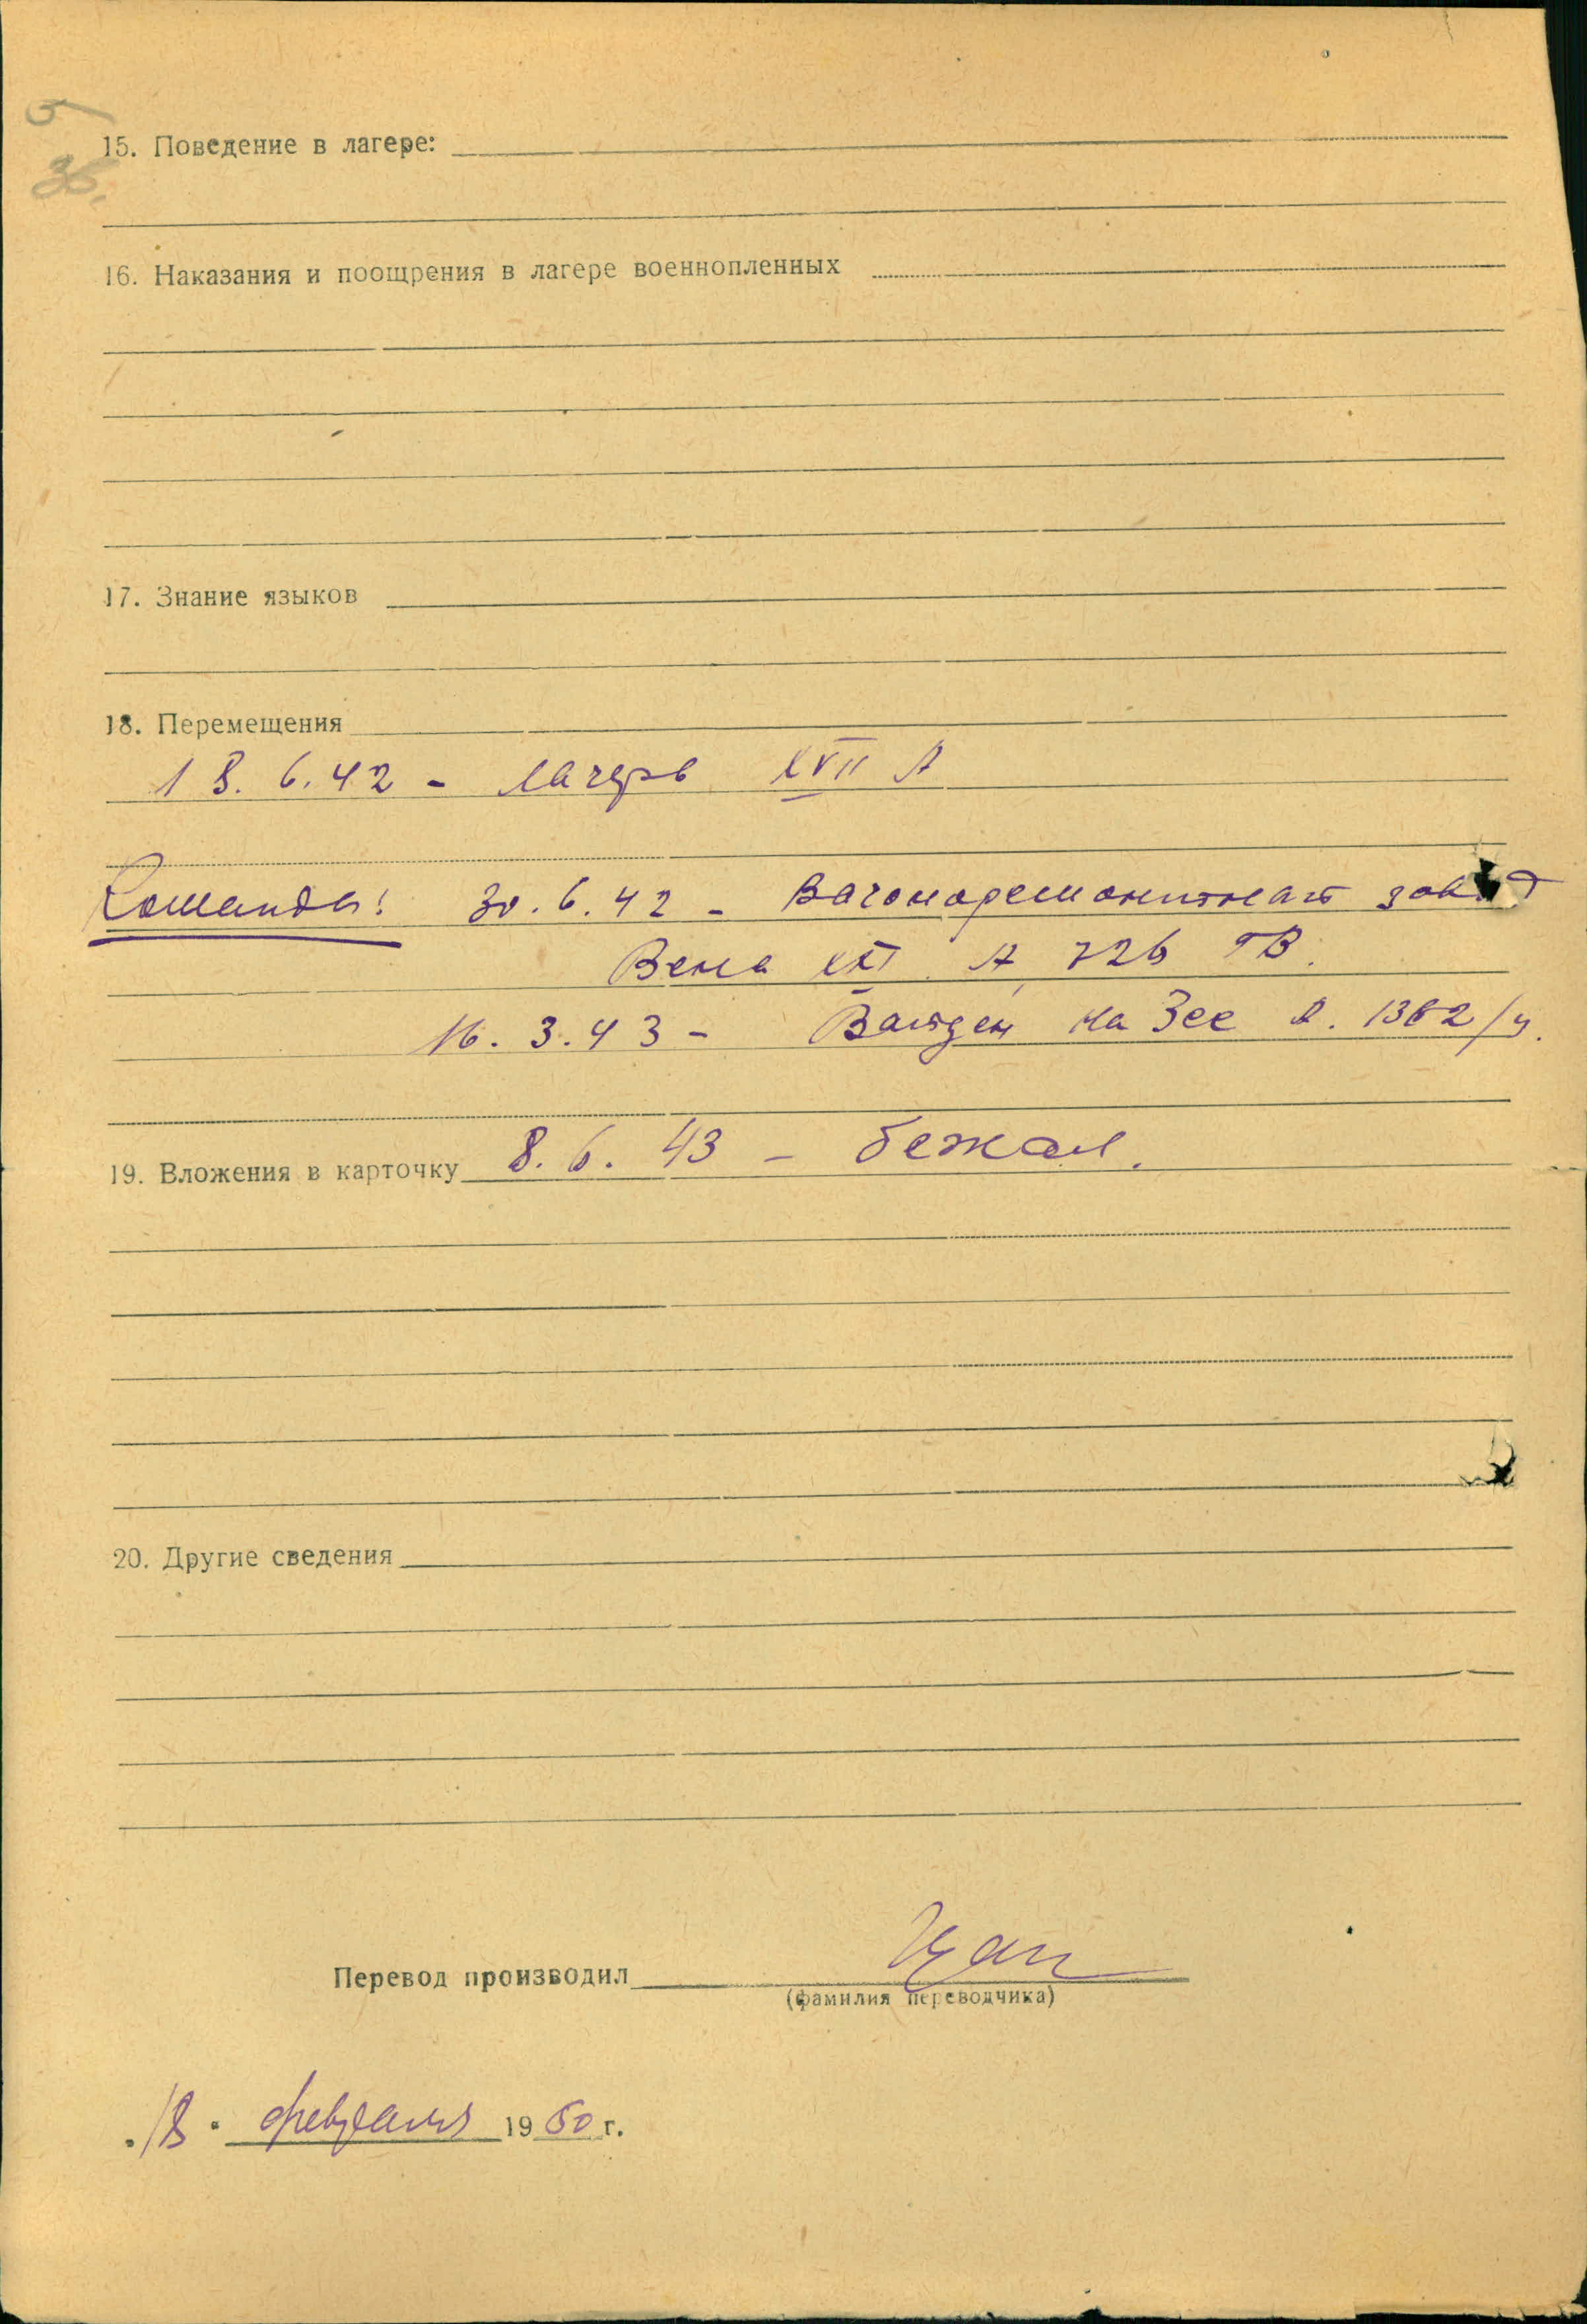 15. Поведение в лагере:
36.
16. Наказания и поощрения в лагере военнопленных
17. Знание языков
18. Перемещения
18. 6. 42 - лагерь XVII А
Команды: 30. 6. 42 - Вагоноремонтный завод
Вена XXI. А 726 ГВ.
16. 3. 43 - Вайден на Зее А. 1382/у.
19. Вложения в карточку 8. 6. 43 - бежал.
20. Другие сведения
Перевод производил
(фамилия переводчика)
"18" февраля 1950 г.